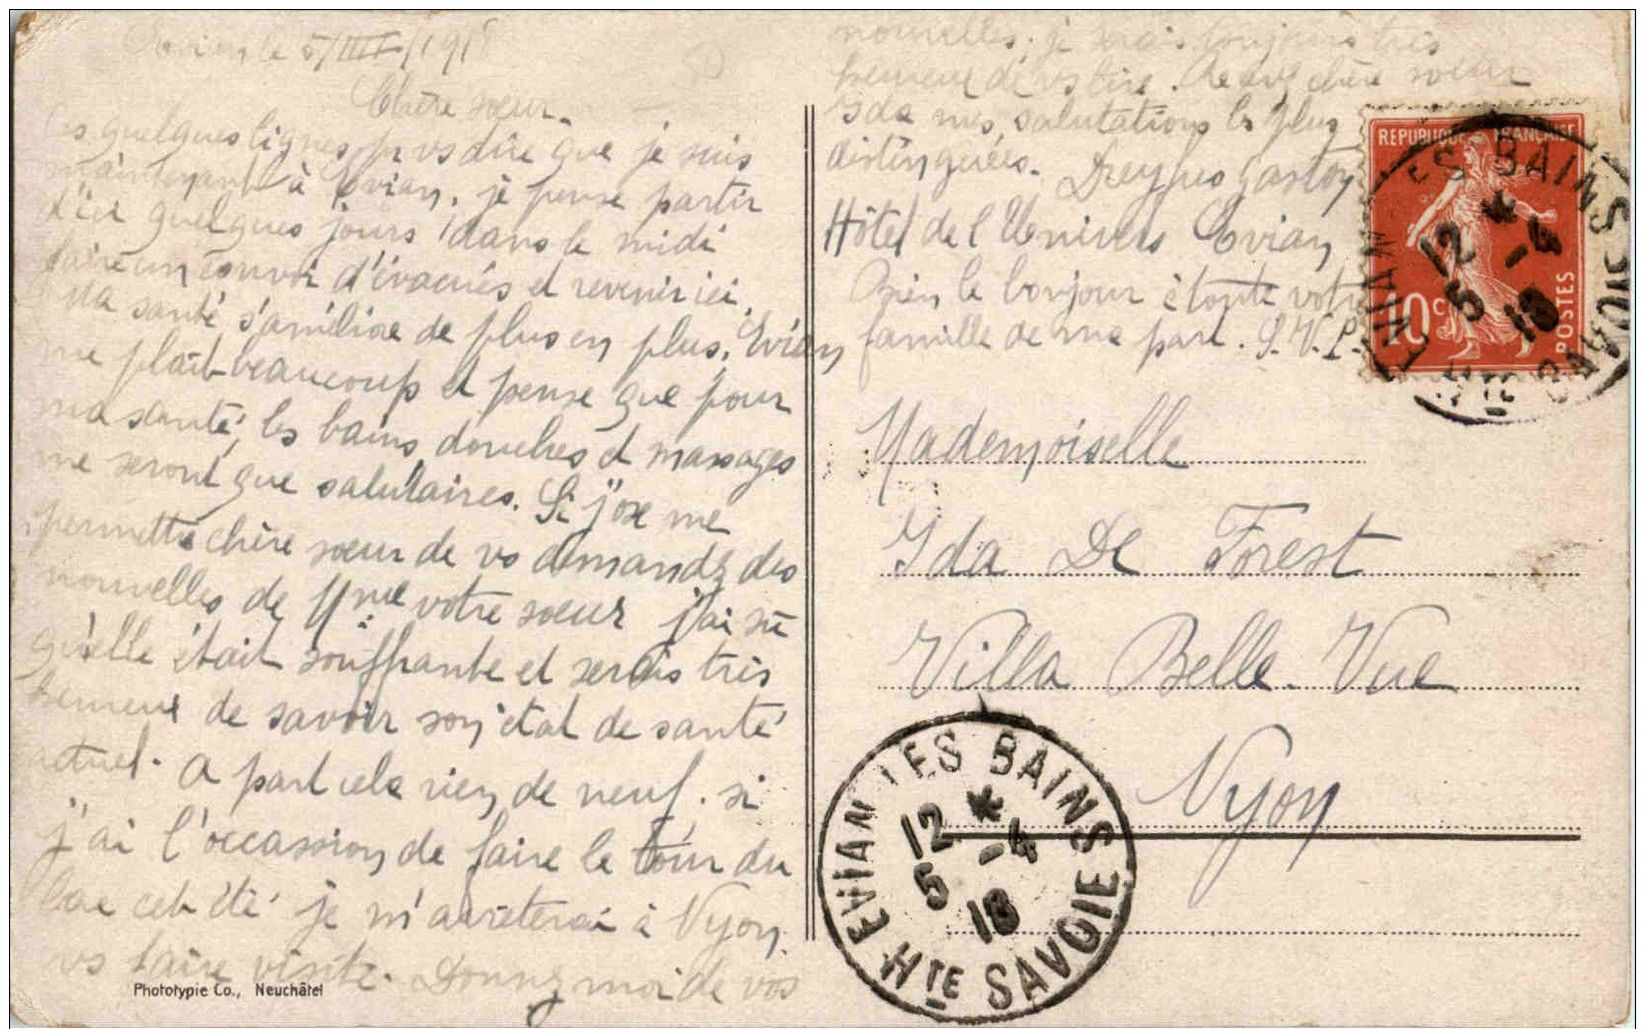 Evian le 5/IIII/1918
Chère soeur.
Ces quelques lignes pr vs dire que je suis
maintenant à Evian, je pense partir
d'ici quelques jours dans le midi
faire un convoir d'évacués et revenir ici.
Ma santé s'améliore de plus en plus, Evian
me plait beaucoup et pense que pour
ma santé, les bains, douches et massages
me seront que salutaires. Si j'ose me
permettre chère soeur de vs demander des
nouvelles de Mme votre soeur j'ai su
qu'elle était souffrante et serais très
heureux de savoir son état de santé
actuel. A part cela rien de neuf. si
j'ai l'occassion de faire le tour du
lac cet été je m'arreterai à Nyon
vs faire visite. Donnez moi de vos
Phototypie Co., Neuchâtel
nouvelles. je serai toujours très
heureux de vs lire. Recevez chère soeur
Ida mes salutations les plus
distinguées. Dreyfus Gaston
Hôtel de l'Univers Evian
Bien le bonjour à toute votre
famille de ma part. S.V.P.
REPUBLIQUE FRANÇAISE
10c POSTES
EVIAN LES BAINS
12 * -4
5 18
Hte SAVOIE
Mademoiselle
Ida De Forest
Villa Belle-Vue
Nyon
EVIAN LES BAINS
12 * -4
5 18
Hte SAVOIE